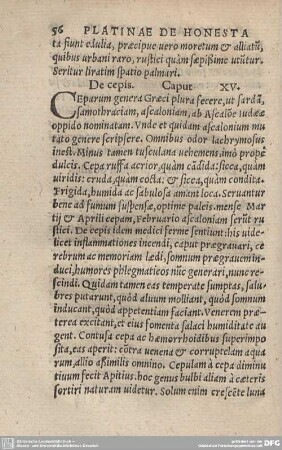 56 PLATINAE DE HONESTA
ta fiunt edulia, præcipue uero moretum & alliatũ,
quibus urbani raro, rustici quàm sæpißime utũtur.
Seritur liratim spatio palmari.
De cepis. Caput XV.
CEparum genera Græci plura fecere, ut sardã,
samothraciam, ascaloniam, ab Ascalõe iudææ
oppido nominatam. Vnde et quidam ascalonium mu
tato genere scripsere. Omnibus odor lachrymosus
inest. Minus tamen tusculana uehemens, imò propè
dulci. Cepa ruffa acrior, quàm cãdida: sicca, quàm
uiridis: cruda, quàm cocta: & sicca, quàm condita.
Frigida, humida ac sabulosa ament loca. Seruantur
bene ad fumum suspensæ, optime paleis. mense Mar
tij & Aprili cepam, Februario ascaloniam serũt ru
stici. De cepis idem medici ferme sentiunt: his uide
licet inflammationes incendi, caput prægrauari, ce
rebrum ac memoriam lædi, somnum prægrauem in
duci, humores phlegmaticos nũc generari, nunc re-
scindi. Quidam tamen eas temperate sumptas, salu-
bres putarunt, quòd aluum molliant, quòd somnum
inducant, quòd appetentiam faciant. Venerem præ-
terea excitant, et eius fomenta salaci humiditate au
gent. Contusa cepa ac hæmorrhoidibus superimpo
sita, eas aperit: cõtra uenena & corruptelam aqua
rum, allio aßimilis omnino. Cepulam à cepa diminu
tiuum fecit Apitius. hoc genus bulbi aliam à cæteris
sortiri naturam uidetur. Solum enim crescẽte luna